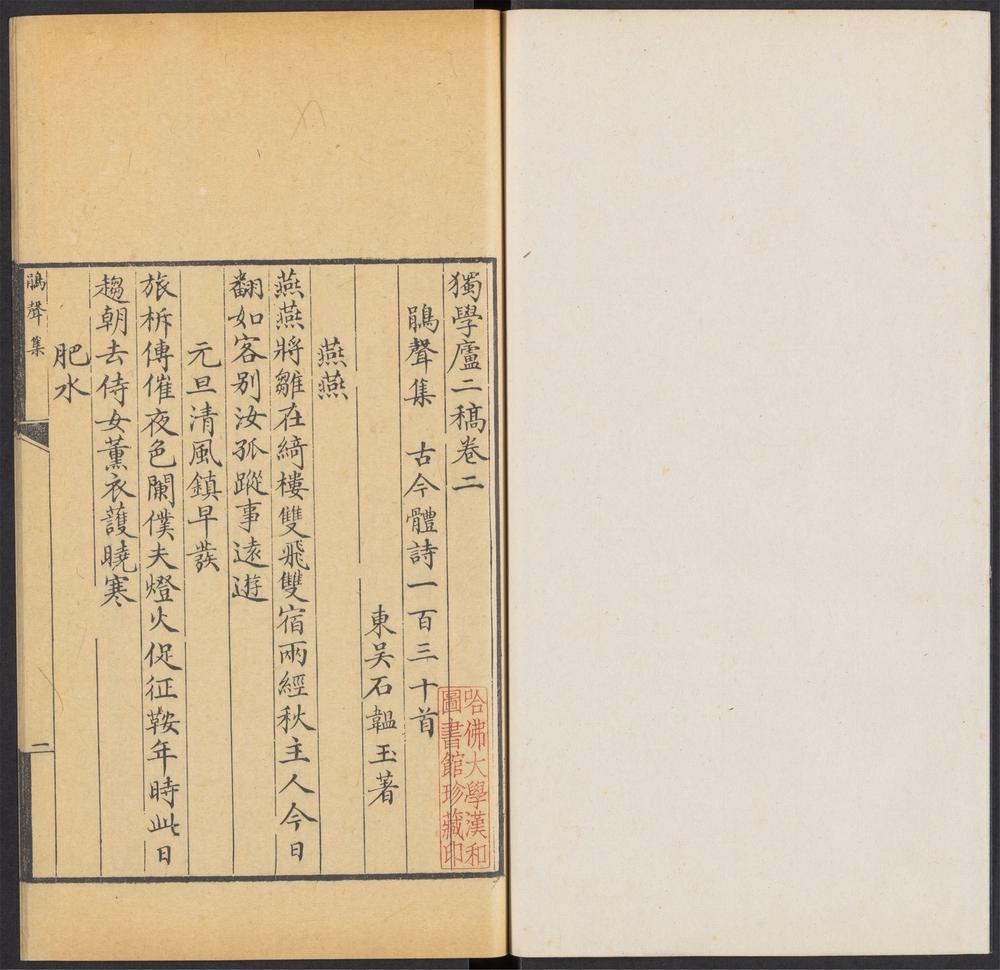 獨學廬二稿卷二
鵑聲集　古今體詩一百三十首
東吴石韞玉著
燕燕
燕燕將雛在綺樓雙飛雙宿兩經秋主人今日
翻如客别汝孤蹤事遠遊
元旦清風鎮早發
旅柝傳催夜色闌僕夫燈火促征鞍年時此日
趨朝去侍女薰衣護曉寒
肥水
鵑聲集
一
哈佛大學漢和
圖書館珍藏印